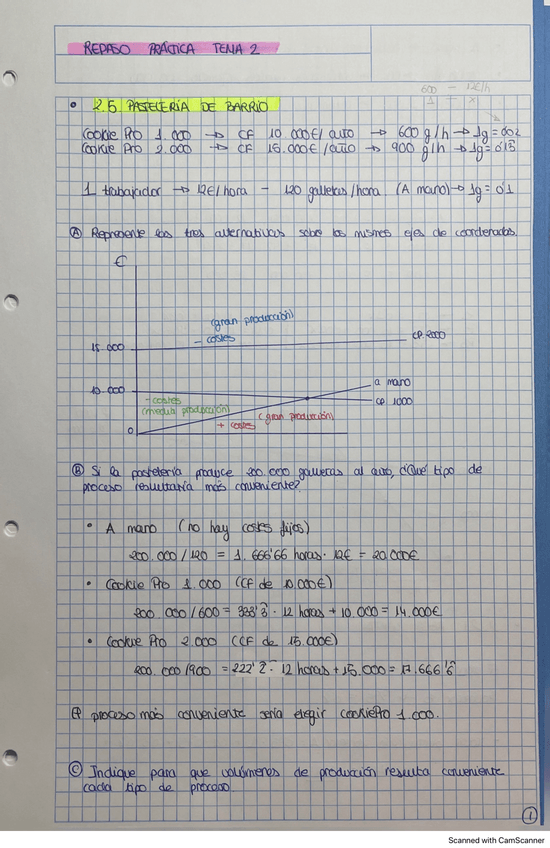 REPASO PRÁCTICA TEMA 2
600 - 12€/h
1 - x
• 2.5 PASTELERÍA DE BARRIO
Cookie Pro 1.000 → CF 10.000€/año → 600 g/h → 1g = 0'02
Cookie Pro 2.000 → CF 15.000€/año → 900 g/h → 1g = 0'013
1 trabajador → 12€/hora - 120 galletas/hora (A mano) → 1g = 0'1
Ⓐ Represente las tres alternativas sobre los mismos ejes de coordenadas.
€
(gran producción)
- costes
15.000
CP 2000
10.000
a mano
- costes
CP 1000
(media producción)
(gran producción)
+ costes
0
Ⓑ Si la pastelería produce 200.000 galletas al año, ¿Qué tipo de
proceso resultaría más conveniente?
• A mano (no hay costes fijos)
200.000/120 = 1.666'66 horas · 12€ = 20.000€
• Cookie Pro 1.000 (CF de 10.000€)
200.000/600 = 333'3 · 12 horas + 10.000 = 14.000€
• Cookie Pro 2.000 (CF de 15.000€)
200.000/900 = 222'2 · 12 horas + 15.000 = 17.666'6
El proceso más conveniente sería elegir CookiePro 1.000.
Ⓒ Indique para que volúmenes de producción resulta conveniente
cada tipo de proceso
1
Scanned with CamScanner